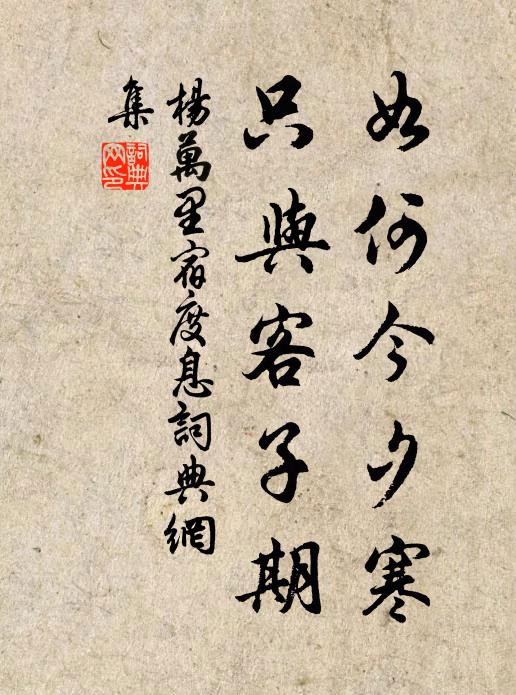 如何今夕寒
只與客子期
楊萬里宿度息詞典網
集
詞典
网印